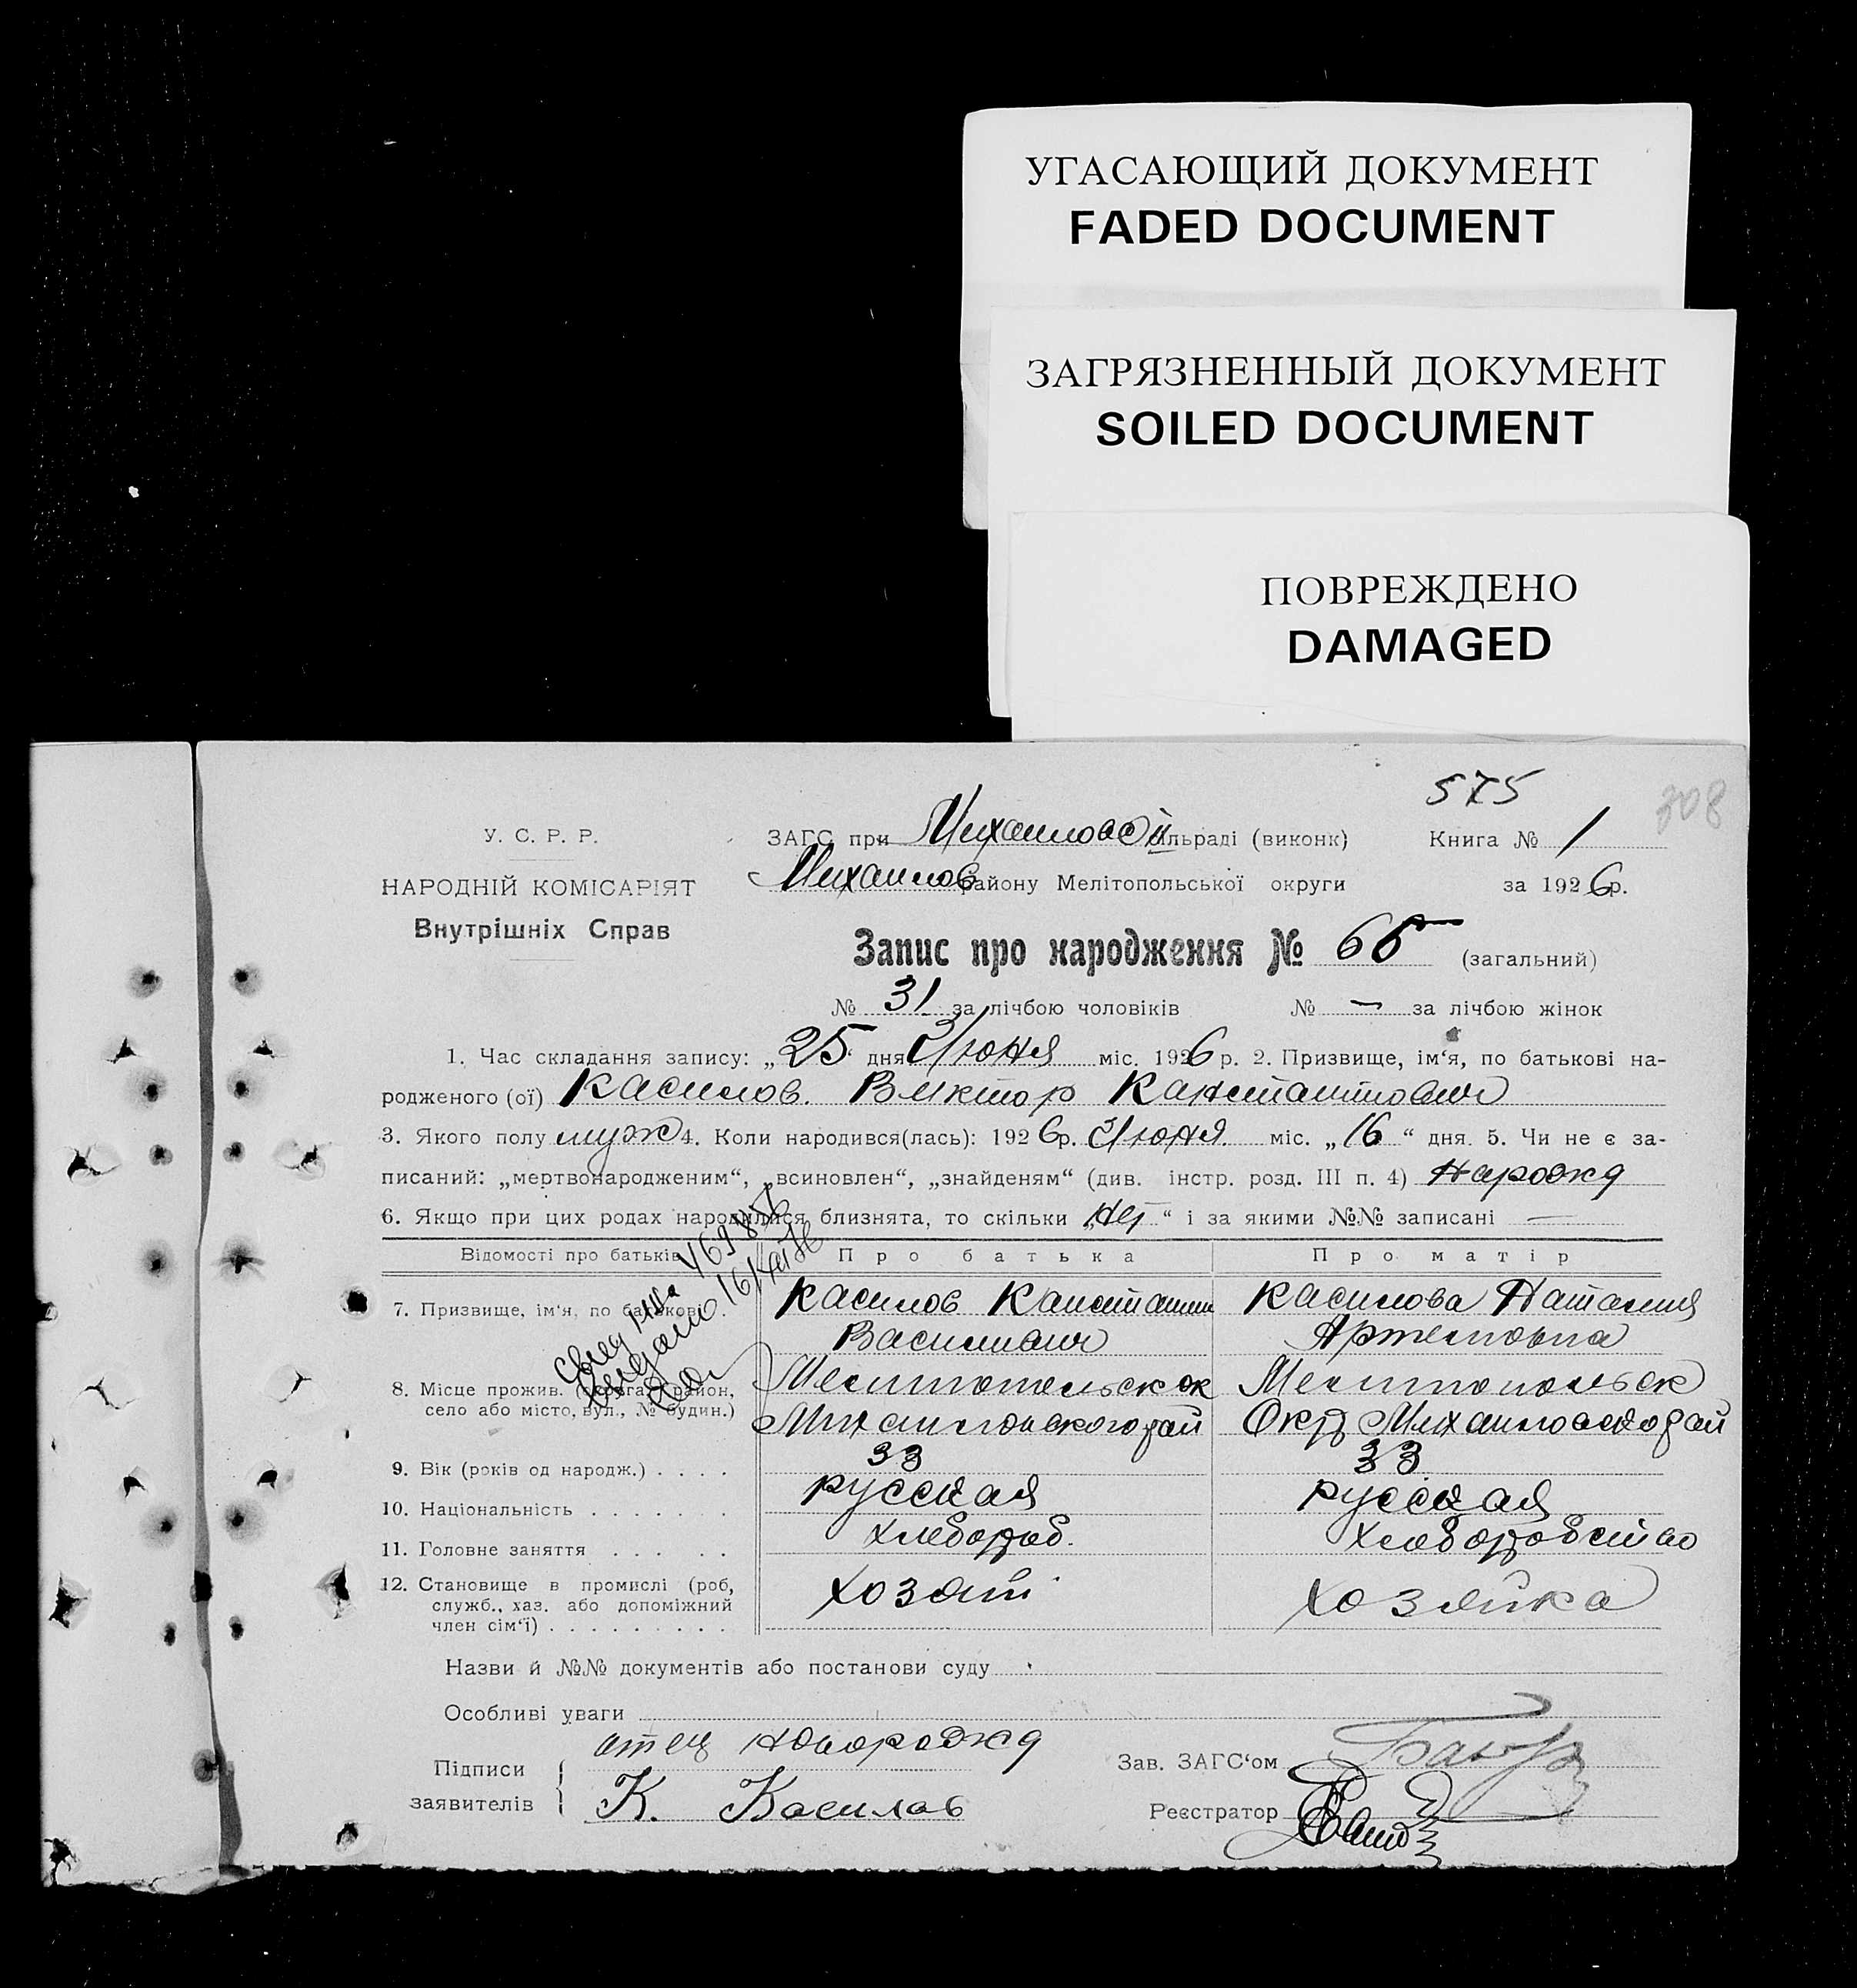 УГАСАЮЩИЙ ДОКУМЕНТ
FADED DOCUMENT
ЗАГРЯЗНЕННЫЙ ДОКУМЕНТ
SOILED DOCUMENT
ПОВРЕЖДЕНО
DAMAGED
575
308
У. С. Р. Р.
НАРОДНІЙ КОМІСАРІЯТ
Внутрішніх Справ
ЗАГС при Михайловс сільраді (виконк)
Михайлов району Мелітопольської округи
Книга № 1
за 1926 р.
Запис про народження № 65 (загальний)
№ 31 за лічбою чоловіків № — за лічбою жінок
1. Час складання запису: „25“ дня Июня міс. 1926 р. 2. Призвище, ім‘я, по батькові на-
родженого (ої) Касилов. Виктор Канстантинович
3. Якого полу муж 4. Коли народився(лась): 1926 р. Июня. міс. „16“ дня. 5. Чи не є за-
писаний: „мертвонародженим“, „всиновлен“, „знайденям“ (див. інстр. розд. III п. 4) Нарожд
6. Якщо при цих родах народилися близнята, то скільки „нет“ і за якими №№ записані —
Відомості про батьків Про батька Про матір
7. Призвище, ім‘я, по батькові . Касилов Канстантин Касилова Наталия
Василович Артемовна
8. Місце прожив. (округа, район, Мелитопольск ок Мелитопольск
село або місто, вул., № будин.) Михайловского рай Окр Михайловского рай
9. Вік (років од народж.) . . . . 33 33
10. Національність . . . . . . . русская русская
11. Головне заняття . . . . . хлебороб. хлеборобство
12. Становище в промислі (роб, хозяин хозяйка
служб., хаз. або допоміжний
член сім‘ї) . . . . . . . . .
Назви й №№ документів або постанови суду
Особливі уваги
отец новорожд
Підписи
заявителів К. Касилов
Зав. ЗАГС‘ом
Реєстратор